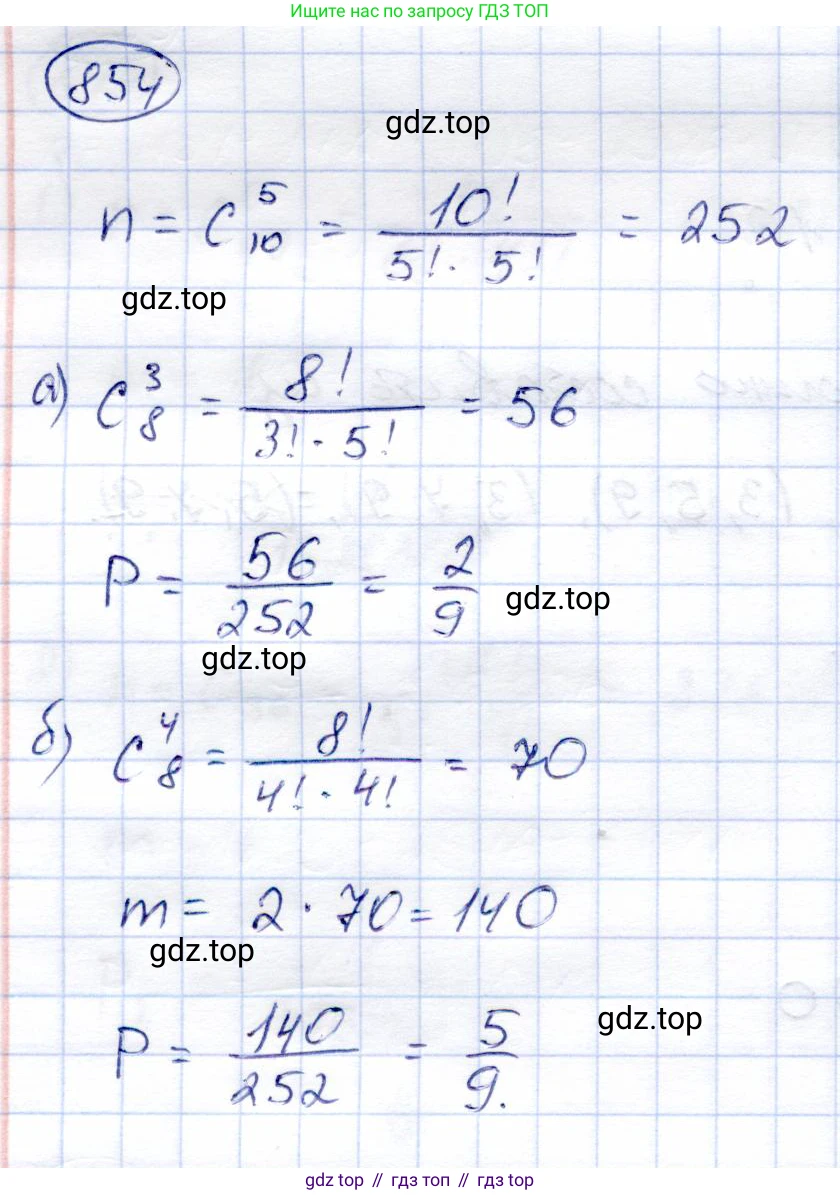 Ищите нас по запросу ГДЗ ТОП
854
gdz.top
n = C_{10}^{5} = \frac{10!}{5! · 5!} = 252
gdz.top
а) C_{8}^{3} = \frac{8!}{3! · 5!} = 56
P = \frac{56}{252} = \frac{2}{9}
gdz.top
gdz.top
б) C_{8}^{4} = \frac{8!}{4! · 4!} = 70
m = 2 · 70 = 140
gdz.top
gdz.top
P = \frac{140}{252} = \frac{5}{9}.
gdz top // гдз топ // gdz top